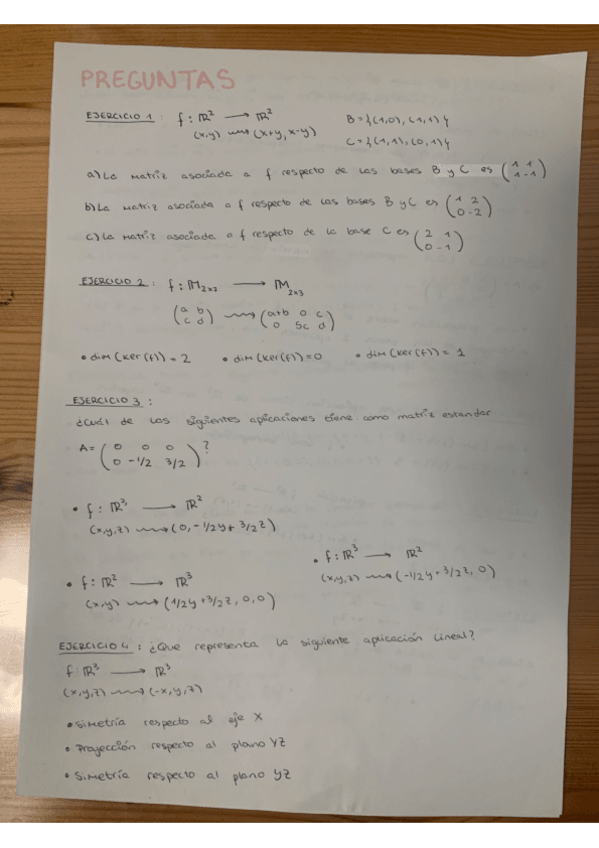 PREGUNTAS
EJERCICIO 1 : f : ℝ² ⟶ ℝ² B = {(1,0), (1,1)}
(x,y) ⟿ (x+y, x-y) C = {(1,1), (0,1)}
a) La matriz asociada a f respecto de las bases B y C es (1 1 / 1 -1)
b) La matriz asociada a f respecto de las bases B y C es (1 2 / 0 -2)
c) La matriz asociada a f respecto de la base C es (2 1 / 0 -1)
EJERCICIO 2 : f : M₂ₓ₂ ⟶ M₂ₓ₃
(a b / c d) ⟿ (a+b 0 c / 0 5c d)
• dim (ker(f)) = 2 • dim (ker(f)) = 0 • dim (ker(f)) = 1
EJERCICIO 3 :
¿Cuál de las siguientes aplicaciones tiene como matriz estandar
A = (0 0 0 / 0 -1/2 3/2) ?
• f : ℝ³ ⟶ ℝ²
(x,y,z) ⟿ (0, -1/2y + 3/2z)
• f : ℝ³ ⟶ ℝ²
(x,y,z) ⟿ (-1/2y + 3/2z, 0)
• f : ℝ² ⟶ ℝ³
(x,y) ⟿ (1/2y + 3/2z, 0, 0)
EJERCICIO 4 : ¿Que representa la siguiente aplicación lineal?
f : ℝ³ ⟶ ℝ³
(x,y,z) ⟿ (-x,y,z)
• Simetría respecto al eje X
• Proyección respecto al plano YZ
• Simetría respecto al plano YZ